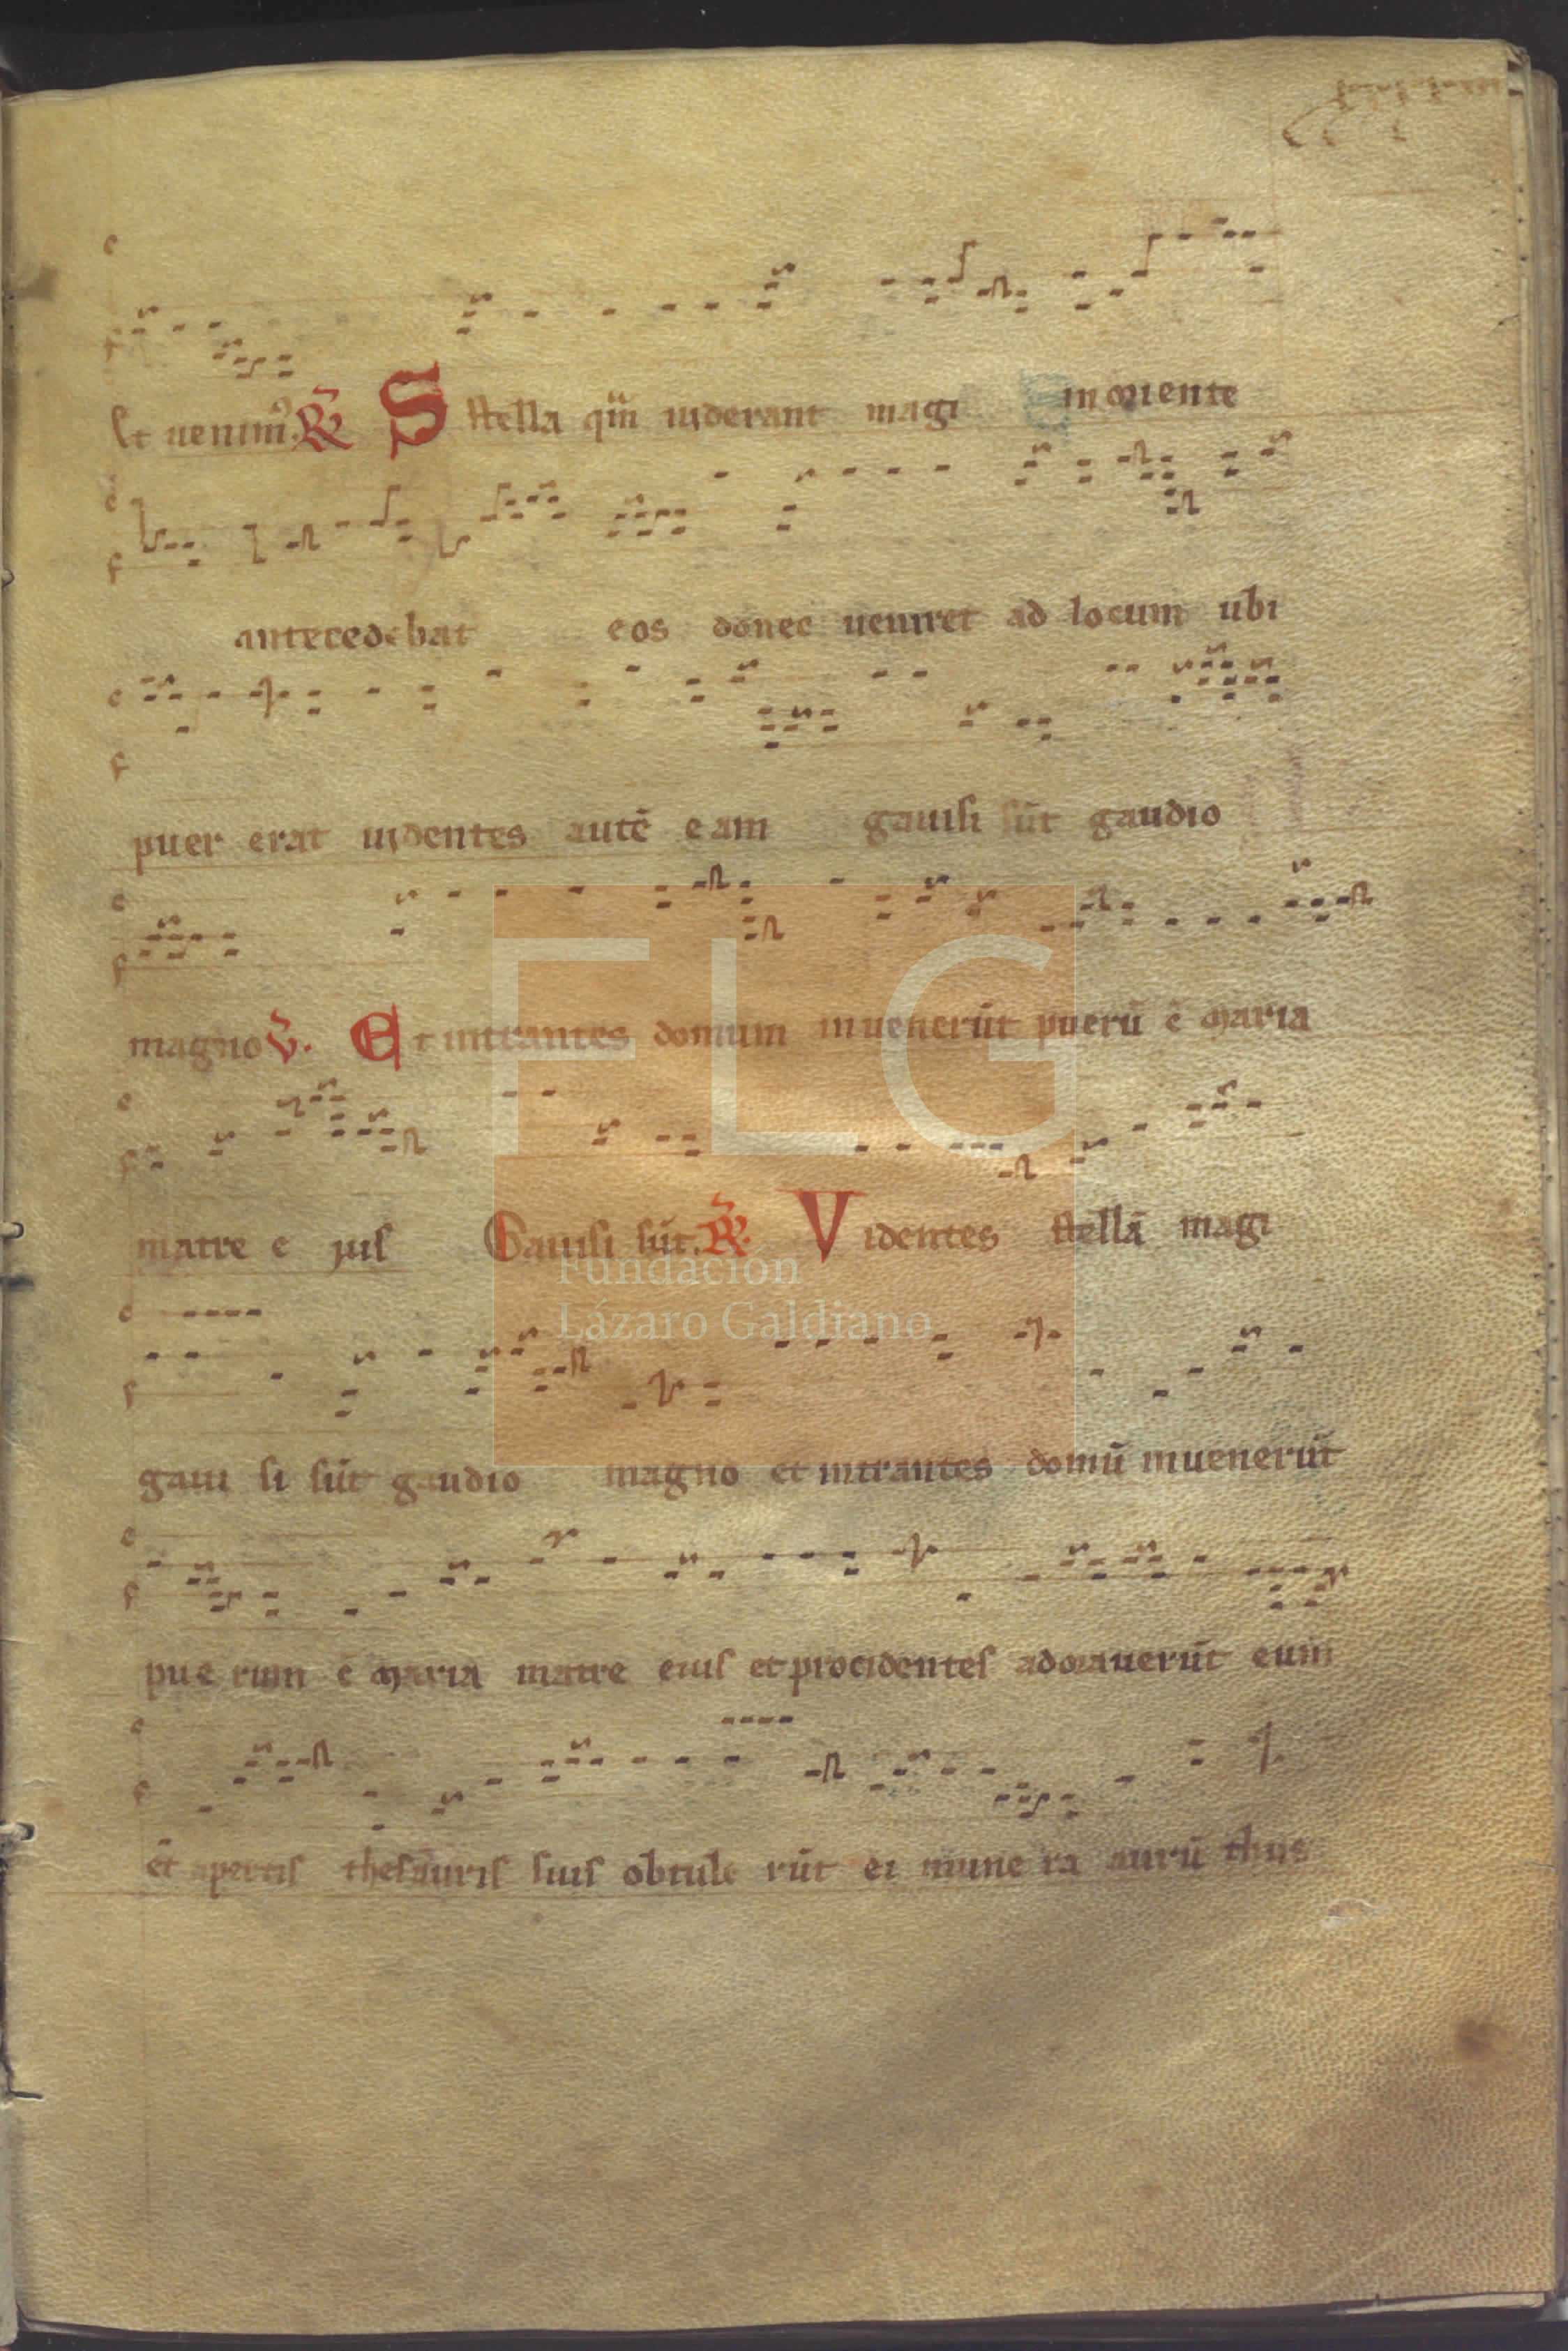 Et uenim⁹. R̃ Stella qm̃ uiderant magi in oriente
antecedebat eos donec ueniret ad locum ubi
puer erat uidentes autẽ eam gauisi sũt gaudio
magno ṽ. Et intrantes domum inuenerũt puerũ c̃ maria
matre e ius Gauisi sũt. R̃. Videntes stellã magi
gaui si sũt gaudio magno et intrantes domũ inuenerũt
pue rum c̃ maria matre eius et procidentes adorauerũt eum
et apertis thesauris suis obtule rũt ei mune ra aurũ thus
FLG
Fundación
Lázaro Galdiano